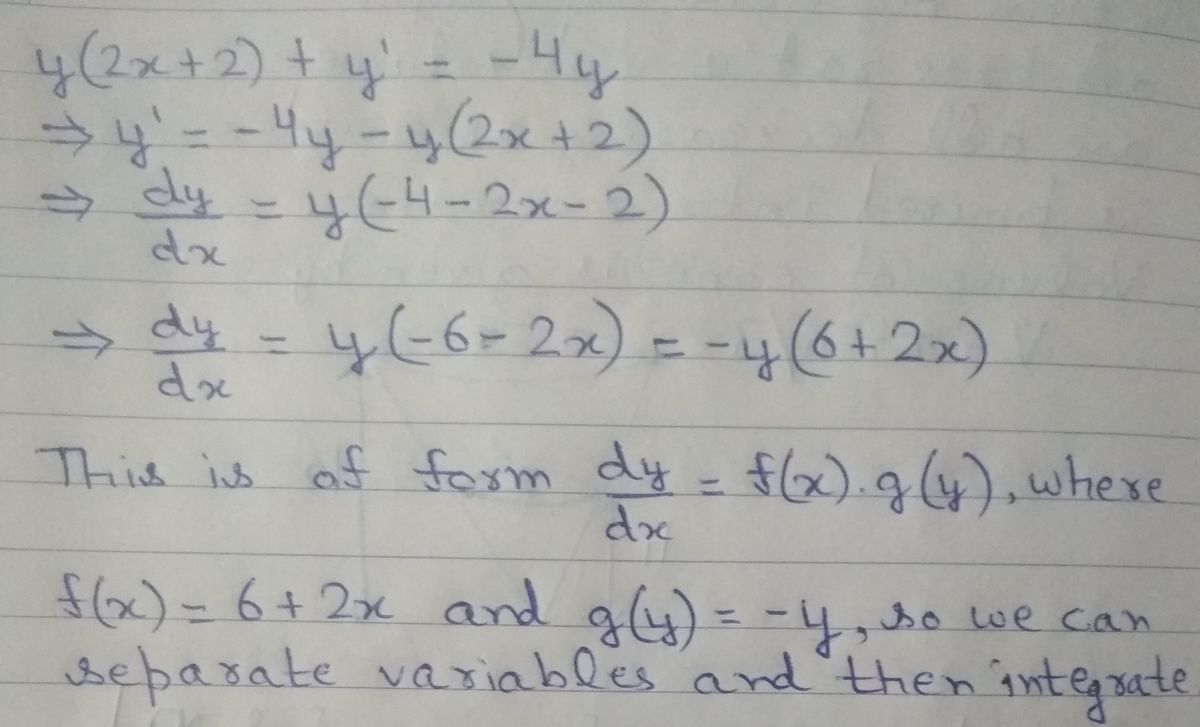 y(2x+2) + y' = -4y
⇒ y' = -4y - y(2x+2)
⇒ dy/dx = y(-4-2x-2)
⇒ dy/dx = y(-6-2x) = -y(6+2x)
This is of form dy/dx = f(x).g(y), where
f(x) = 6+2x and g(y) = -y, so we can
separate variables and then integrate